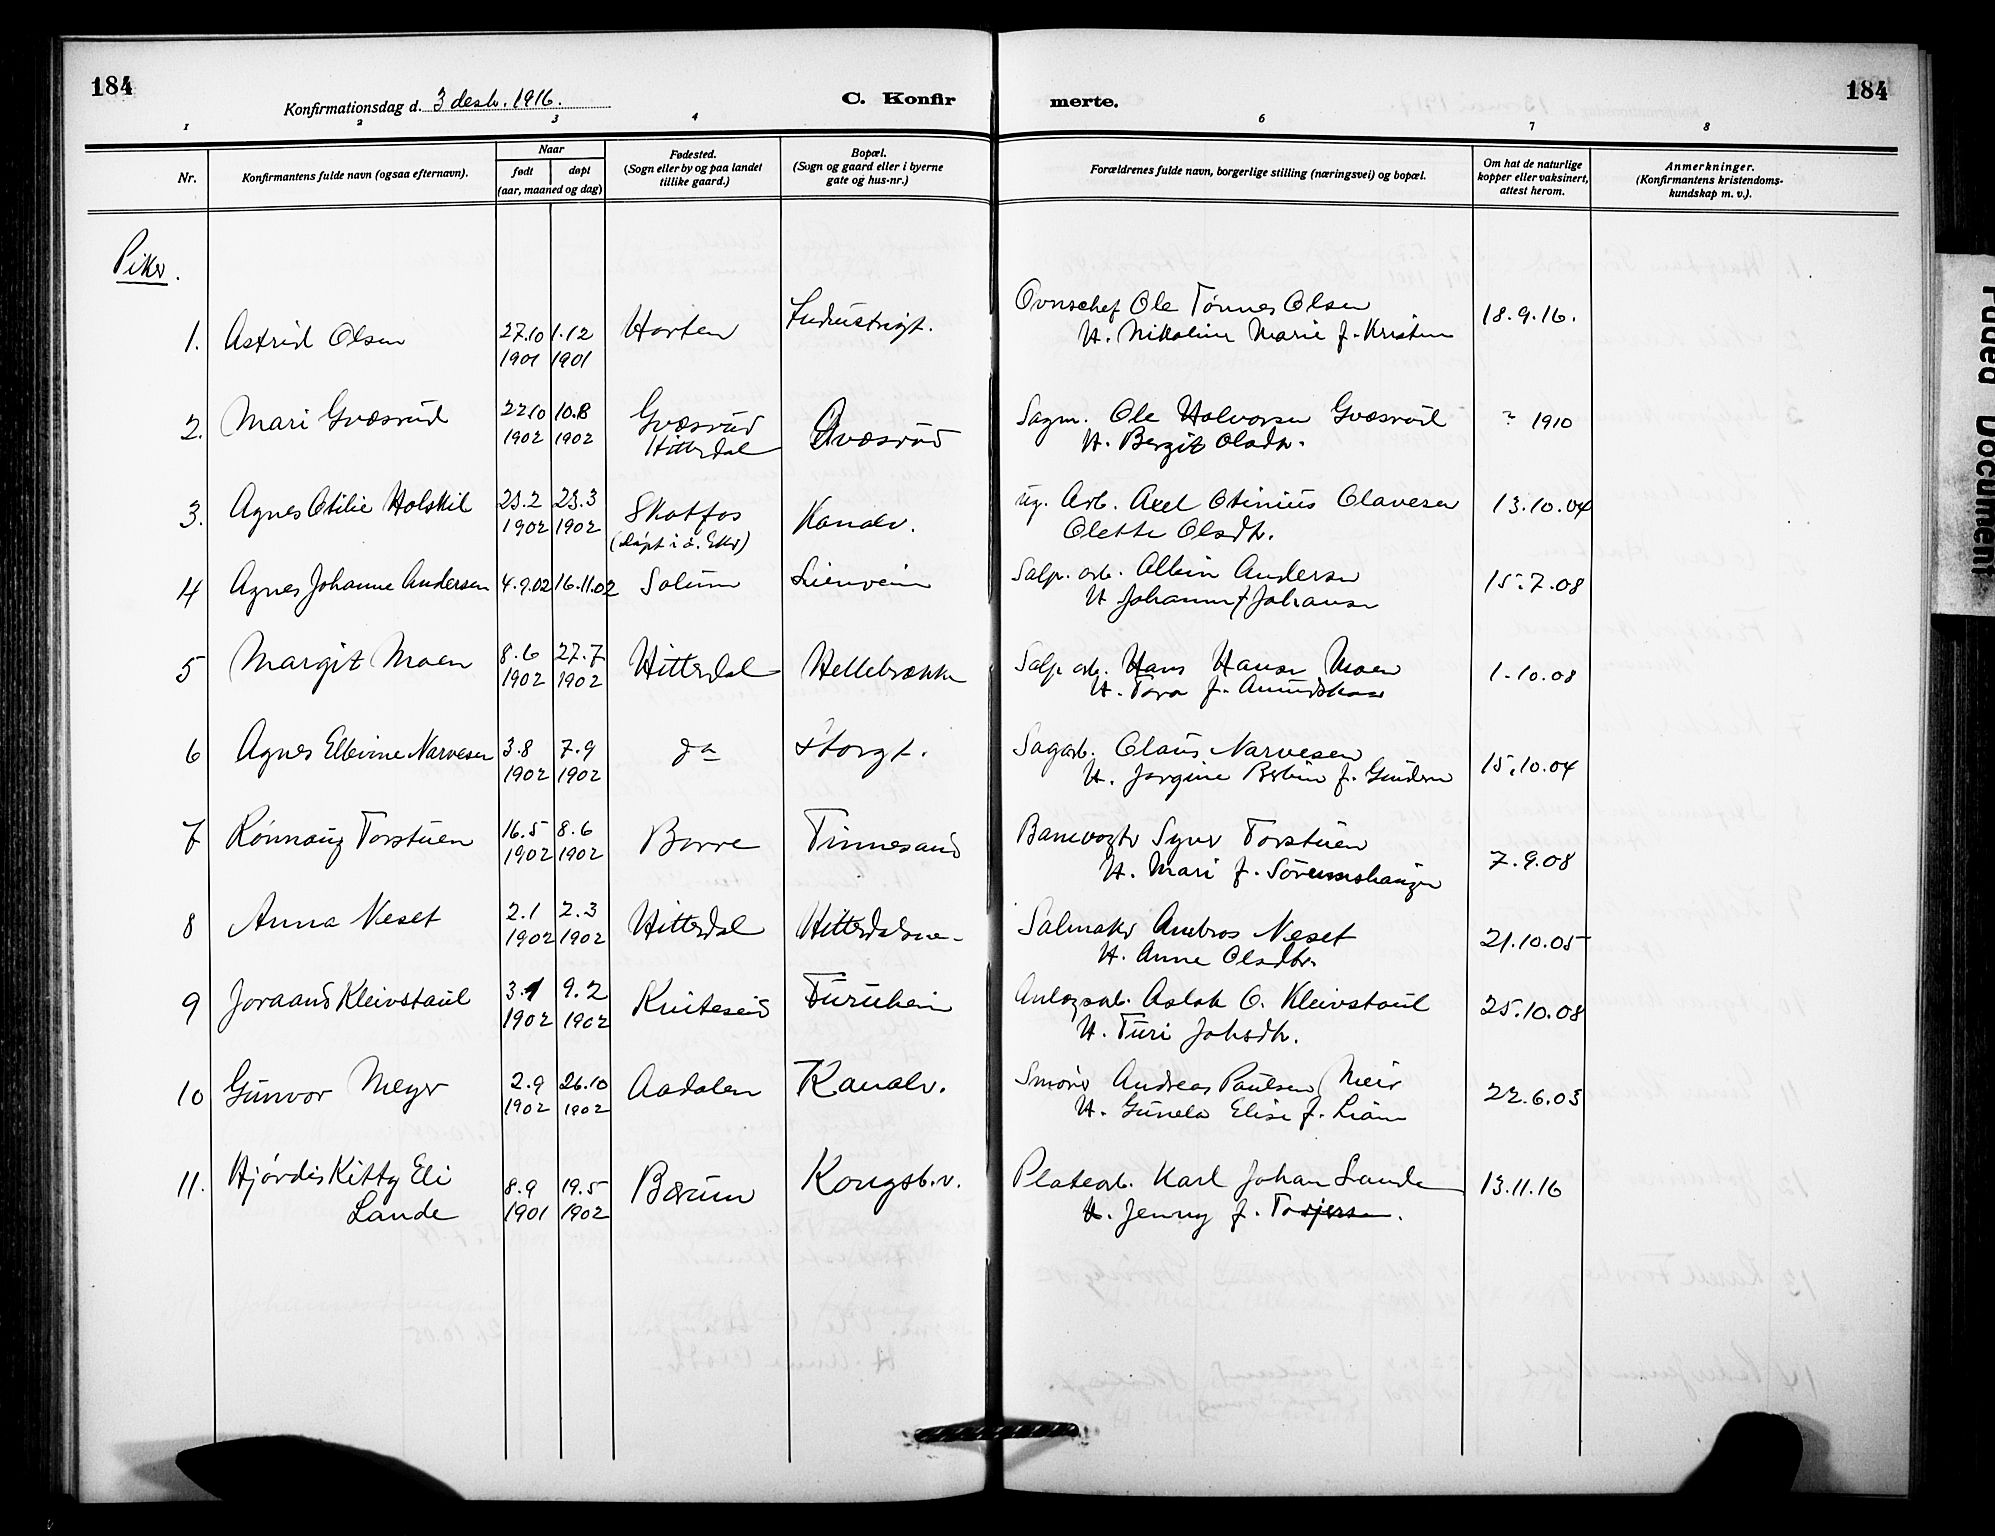 184
Konfirmationsdag d. 3 desbr. 1916.
C. Konfir
merte.
184
1 2 3 4 6 7 8
Nr.
Konfirmantens fulde navn (ogsaa efternavn).
Naar
født
døpt
(aar, maaned og dag)
Fødested.
(Sogn eller by og paa landet
tillike gaard.)
Bopæl.
(Sogn og gaard eller i byerne
gate og hus-nr.)
Forældrenes fulde navn, borgerlige stilling (næringsvei) og bopæl.
Om hat de naturlige
kopper eller vaksinert,
attest herom.
Anmerkninger.
(Konfirmantens kristendoms-
kundskap m. v.).
Piker.
1. Astrid Olsen 27.10 1901 1.12 1901 Horten Industrigt. Ovnschef Ole Tønnes Olsen
H. Nikoline Marie f. Kristen 18.9.16.
2. Mari Gvæsrud 22.10 1902 10.8 1902 Gvæsrud
Hitterdal Gvæsrud Sagm. Ole Halvorsen Gvæsrud
H. Bergit Olsdtr. ? 1910
3. Agnes Otilie Holskil 23.2 1902 23.3 1902 Skotfos
(døpt i ) Kanalv. ug. Arb. Axel Otinius Olavesen
Olette Olsdtr. 13.10.04
4 Agnes Johanne Andersen 4.9.02 16.11.02 Solum Lienveien Salp. arb. Albin Andersen
H. Johanne f. Johansen 15.7.08
5 Margit Moen 8.6 1902 27.7 1902 Hitterdal Hellebrække Salp. arb. Hans Hansen Moen
H. Tora f. Amundsen 1.10.08
6 Agnes Ellevine Narvesen 3.8 1902 7.9 1902 do Storgt. Sagarb. Claus Narvesen
H. Jorgine f. Gundersen 15.10.04
7 Rønnaug Torstuen 16.5 1902 8.6 1902 Borre Tinnesand Banevogter Syver Torstuen
H. Mari f. Sørumshaugen 7.9.08
8 Anna Neset 2.1 1902 2.3 1902 Hitterdal Hitterdalsv. Salmaker Ambros Neset
H. Anne Olsdtr. 21.10.05
9 Joraand Kleivstaul 3.1 1902 9.2 1902 Kviteseid Furuheim Anlegsarb. Aslak O. Kleivstaul
H. Turi Johsdtr. 25.10.08
10 Gunvor Meyer 2.9 1902 26.10 1902 Aadalen Kanalv. Smører Andreas Paulsen Meier
H. Gunela Elise f. Liane 22.6.03
11. Hjørdis Kitty Eli
Lande 8.9 1901 19.5 1902 Bærum Kongsb.v. Platearb. Karl Johan Lande
H. Jenny f. Torjersen. 13.11.16
Faded Document